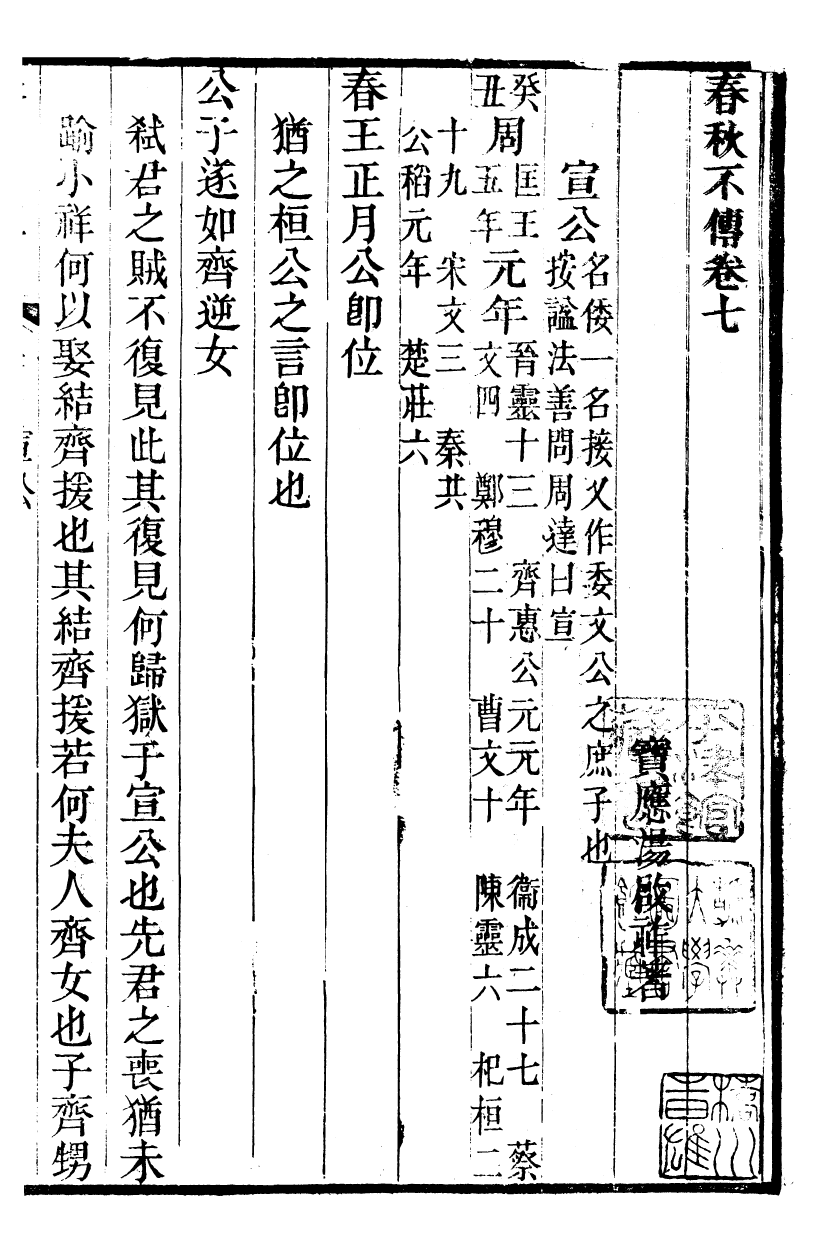 春秋不傳卷七
寶應湯啟祚著
宣公名倭一名接又作委文公之庶子也
按諡法善問周達曰宣
癸丑周匡王五年元年晉靈十三 齊惠公元元年 衞成二十七 蔡
文四 鄭穆二十 曹文十 陳靈六 杞桓二
十九 宋文三 秦共
公稻元年 楚莊六
春王正月公卽位
猶之桓公之言卽位也
公子遂如齊逆女
弑君之賊不復見此其復見何歸獄于宣公也先君之喪猶未
踰小祥何以娶結齊援也其結齊援若何夫人齊女也子齊甥
宣公